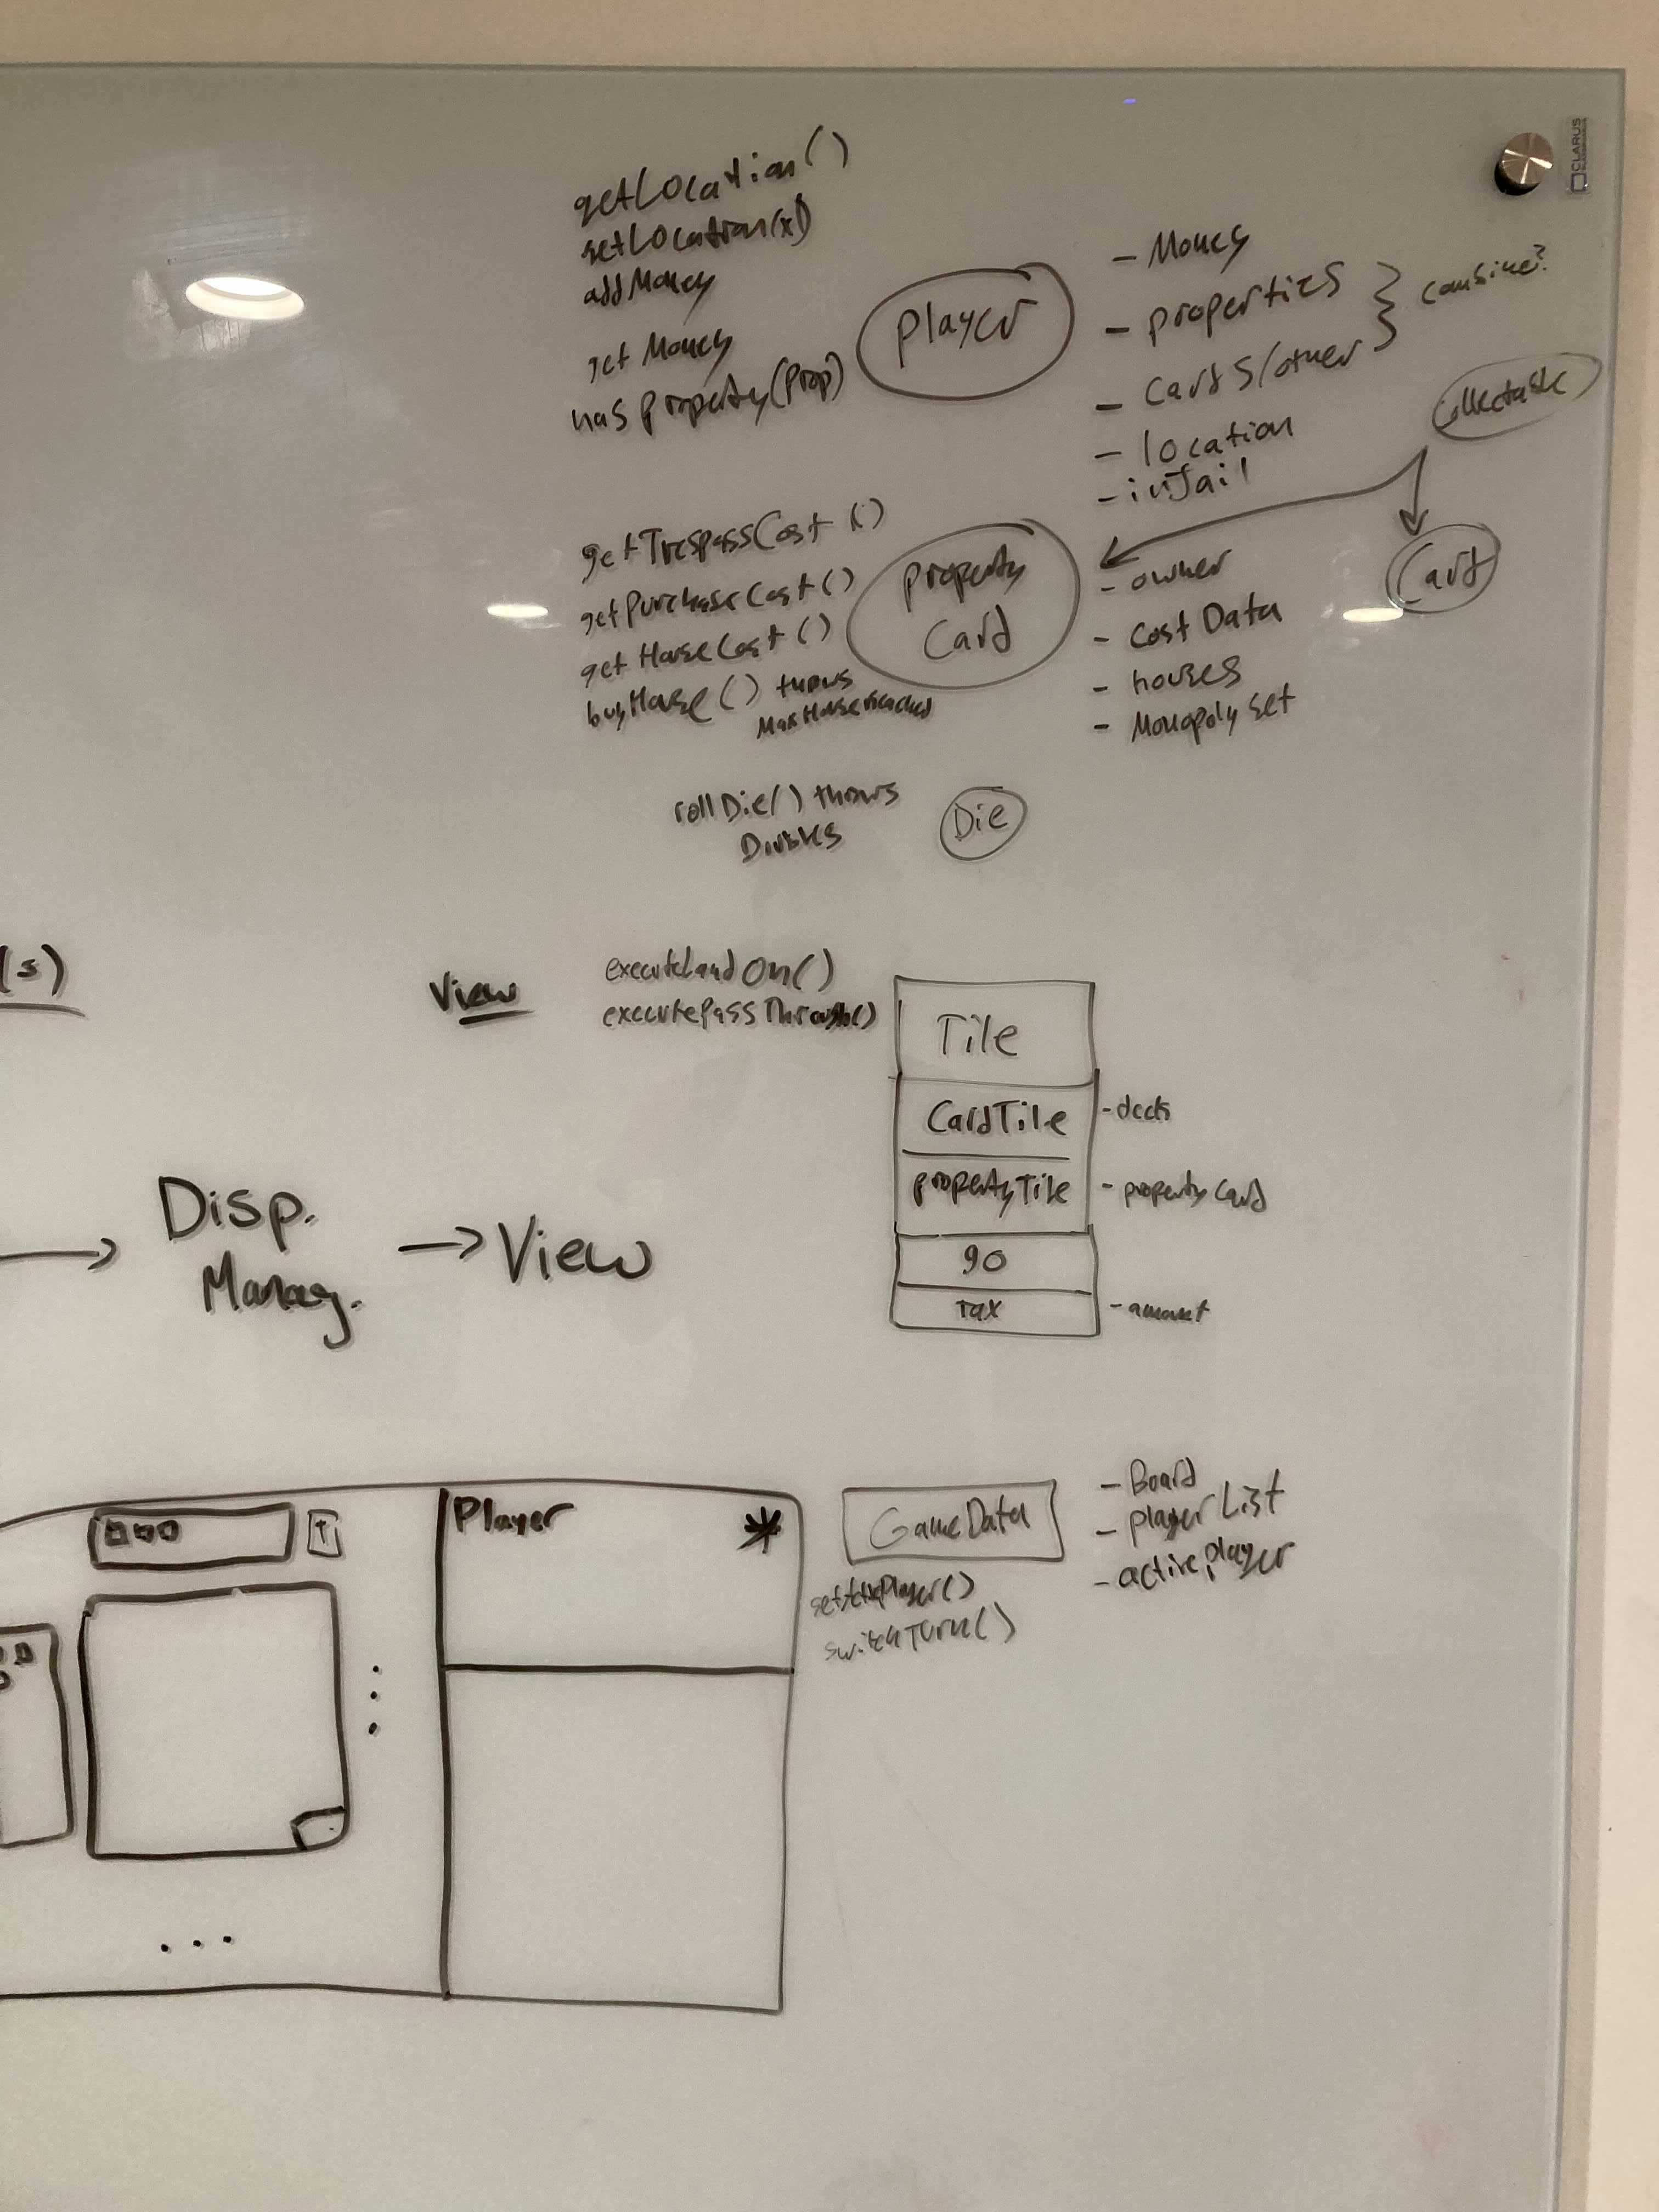 CLARUS
getLocation()
setLocation(x)
addMoney
getMoney
hasProperty(Prop)
player
- Money
- properties
- Cards/other
combine?
- location
- inJail
Collectable
Card
getTrespassCost()
getPurchaseCost()
getHouseCost()
buyHouse() throws
MaxHouseReached
property
Card
- owner
- Cost Data
- houses
- Monopoly Set
rollDie() throws
Doubles
Die
(s)
View
executeLandOn()
executePassThrough()
Tile
CardTile
- deck
propertyTile
- propertyCard
go
Tax
- amount
Disp.
Manag.
View
Player
GameData
- Board
- player List
- active player
setActivePlayer()
switchTurn()